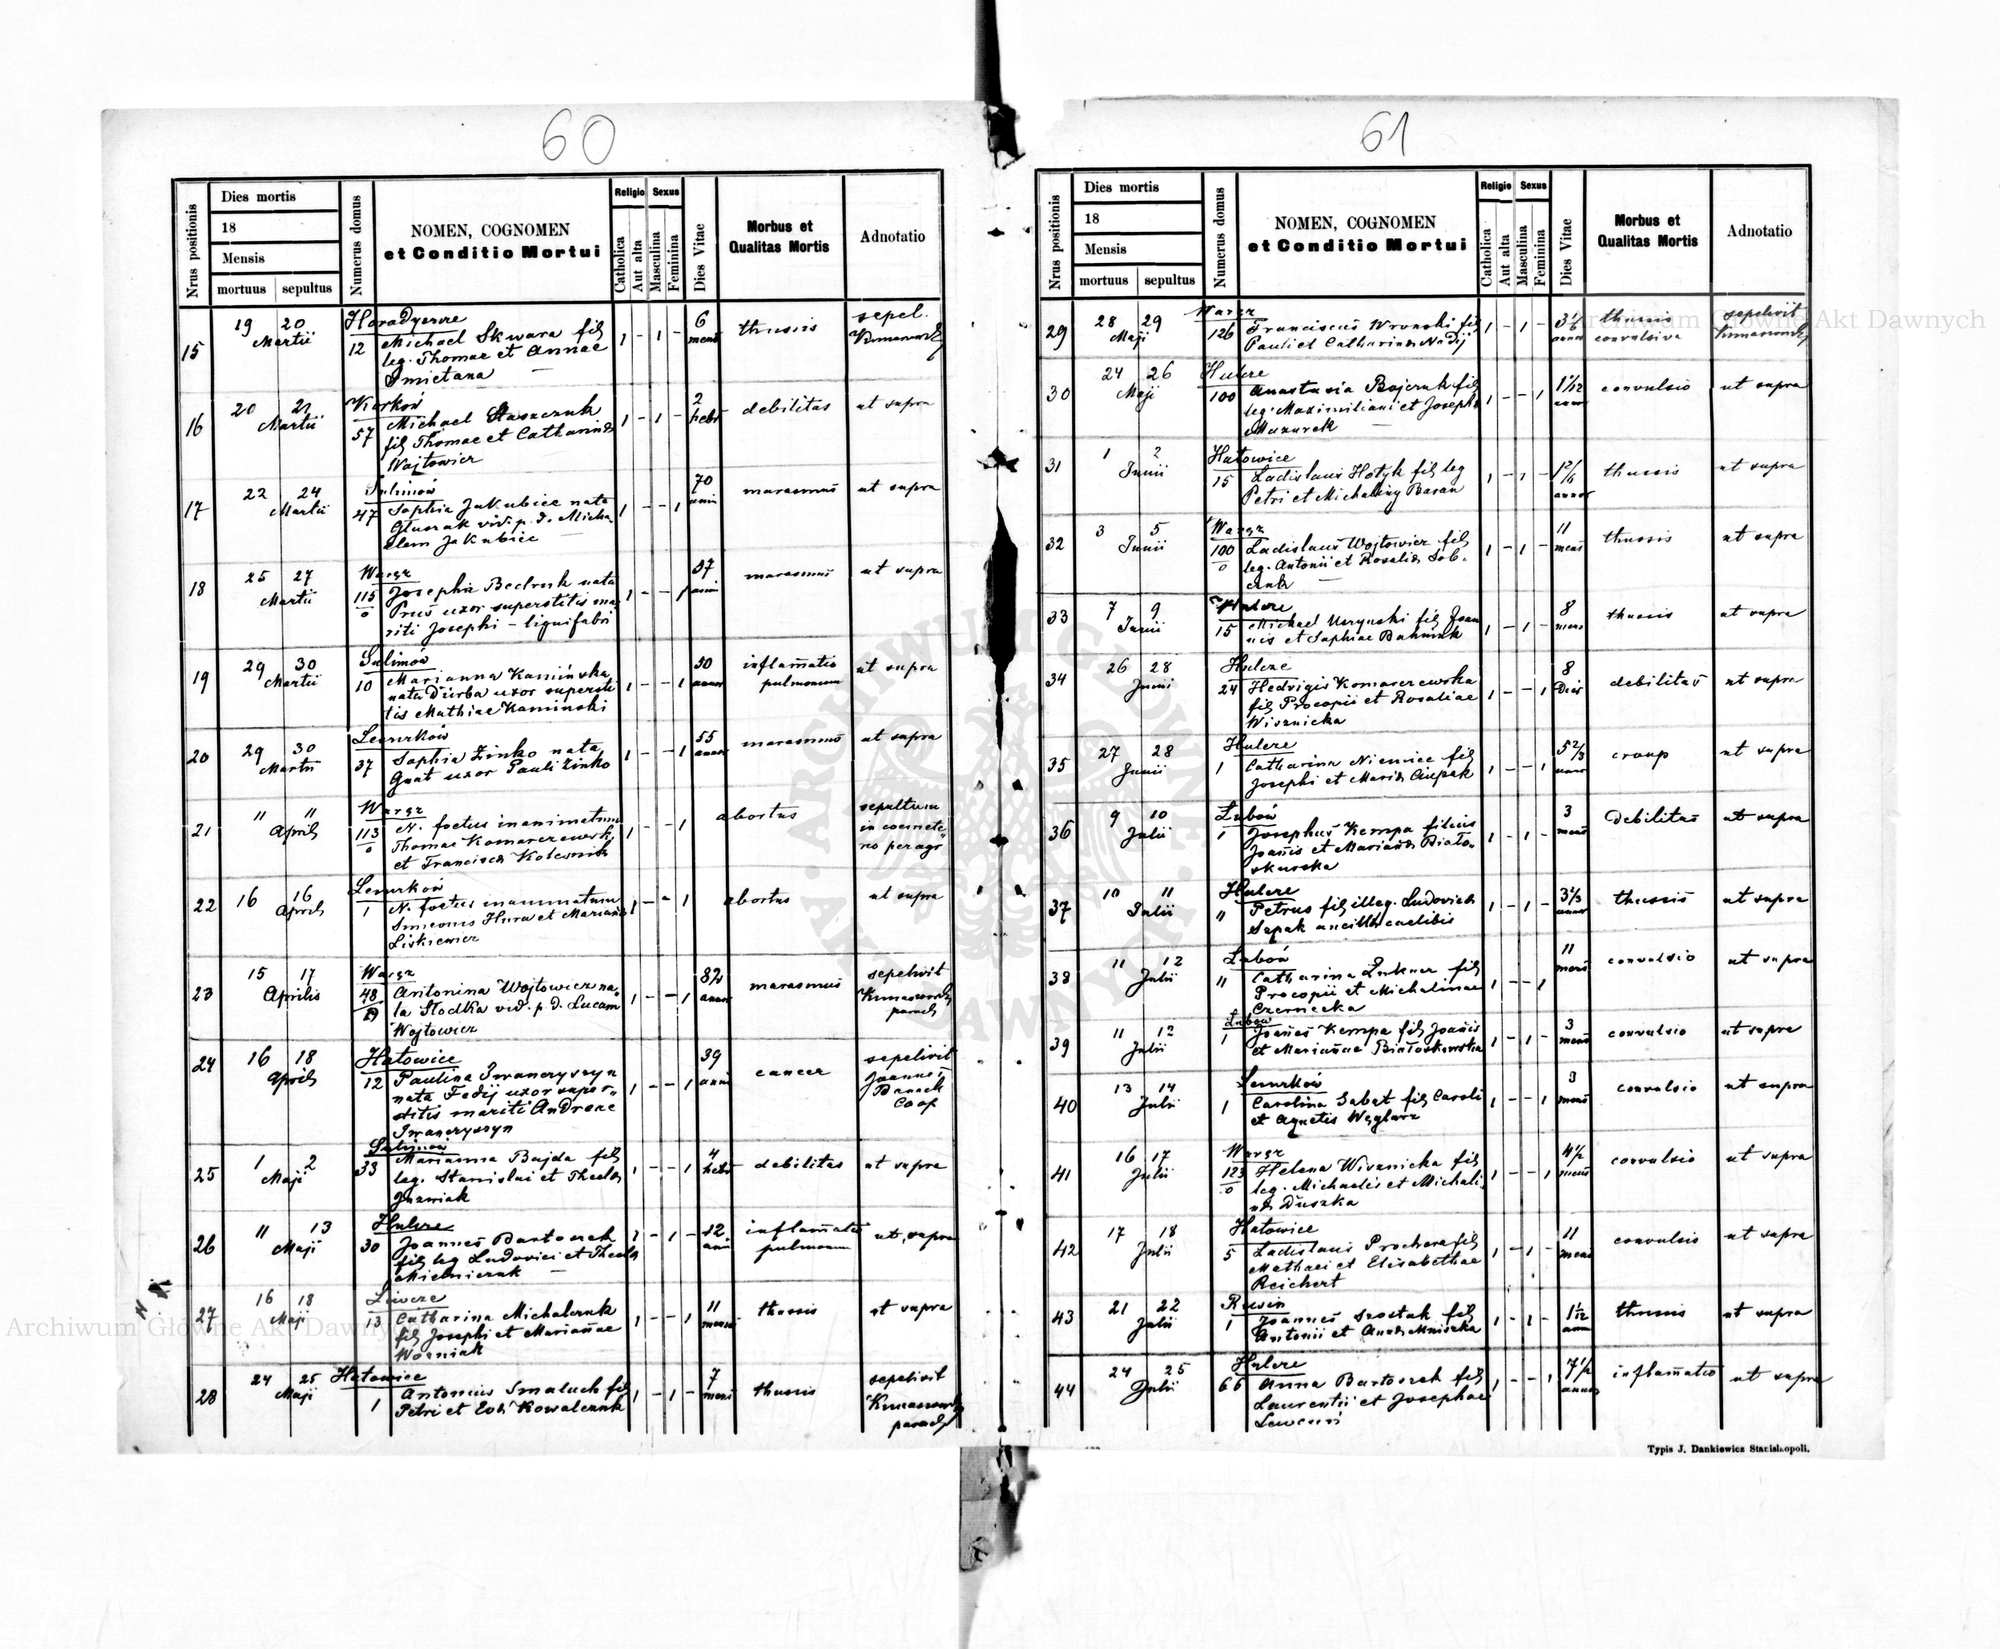 60
Nrus positionis
Dies mortis
18
Mensis
mortuus sepultus
Numerus domus
NOMEN, COGNOMEN
et Conditio Mortui
Religio
Catholica
Aut alta
Sexus
Masculina
Feminina
Dies Vitae
Morbus et
Qualitas Mortis
Adnotatio
15 19 20 Martii 12
Michael Skwara fil
leg. Thomae et Annae
Smietana
1 - 1 - 6 mens thussis sepel.
16 20 21 Martii 57
Michael
fil Thomae et Catharinae
Wojtowicz
1 - 1 - 2 hebd debilitas ut supra
17 22 24 Martii Sulimów 47
Sophia Jakubiec nata
vid. p. d. Micha
elem Jakubiec
1 - - 1 70 marasmus ut supra
18 25 27 Martii Waręż 115/0
Josepha Bedruk nata
Prus uxor superstitis ma
riti Josephi - lignifabri
1 - - 1 57 marasmus ut supra
19 29 30 Martii Sulimów 10
Marianna Kamińska
nata Durba uxor supersti
tis Mathiae Kaminski
1 - - 1 50 inflamatio
pulmonum
ut supra
20 29 30 Martii 37
Sophia Zinko nata
Gnat uxor Pauli Zinko
1 - - 1 55 marasmus ut supra
21 11 11 Aprilis Waręż 113/0
N. foetus inanimatum
Thomae Komarzewski
et Franciscae
1 - - 1 abortus sepultum
in coemete
rio
22 16 16 Aprilis 1
N. foetus inanimatum
Simeonis Hura et Marianae
Liskiewicz
1 - - 1 abortus ut supra
23 15 17 Aprilis Waręż 48
Antonina Wojtowicz na
ta Stodka vid. p. d. Lucam
Wojtowicz
1 - - 1 82 marasmus sepelivit
24 16 18 Aprilis Hatowice 12
Paulina Iwanczyszyn
nata Fedij uxor super
stitis mariti Andreae
Iwanczyszyn
1 - - 1 39 anni cancer sepelivit
Joannes
Coop
25 1 2 Maji Sulimów 33
Marianna Bajda fil
leg. Stanislai et Theclae
Juzwiak
1 - - 1 4 hebd debilitas ut supra
26 11 13 Maji Hulcze 30
Joannes Bartoszek
fil leg Ludovici et Theclae
Mielniczuk
1 - 1 - 12 inflamatio
pulmonum
ut supra
27 16 18 Maji Liwcze 13
Catharina Michalczuk
fil Josephi et Marianae
Woźniak
1 - - 1 11 thussis ut supra
28 24 25 Maji Hatowice 1
Antonius Smaluch fil
Petri et Evae Kowalczuk
1 - 1 - 7 mens thussis sepelivit
61
Nrus positionis
Dies mortis
18
Mensis
mortuus sepultus
Numerus domus
NOMEN, COGNOMEN
et Conditio Mortui
Religio
Catholica
Aut alta
Sexus
Masculina
Feminina
Dies Vitae
Morbus et
Qualitas Mortis
Adnotatio
29 28 29 Maji Waręż 126
Franciscus Wronski fil
Pauli et Catharinae
1 - 1 - thussis
convulsiva
sepelivit
30 24 26 Maji Hulcze 100
Anastasia Bojczuk fil
leg. Maximiliani et Josephae
Mazurek
1 - - 1 1 1/12 convulsio ut supra
31 1 2 Junii Hatowice 15
Ladislaus Hotyk fil leg
Petri et Michaliny Baran
1 - 1 - thussis ut supra
32 3 5 Junii Waręż 100/0
Ladislaus Wojtowicz fil
leg. Antonii et Rosaliae Sob
czuk
1 - 1 - 11 mens thussis ut supra
33 7 9 Junii Hulcze 15
Michael fil Joan
nis et Sophiae
1 - 1 - 8 mens thussis ut supra
34 26 28 Junii Hulcze 24
Hedvigis Komarzewska
fil Procopii et Rosaliae
Wisznicka
1 - - 1 8 Dies debilitas ut supra
35 27 28 Junii Hulcze 1
Catharina Niewiec fil
Josephi et Mariae Ciupak
1 - - 1 5 2/3 croup ut supra
36 9 10 Julii Łubów 1
Josephus Kempa filius
Joanis et Marianae Biało
skurska
1 - 1 - 3 mens Debilitas ut supra
37 10 11 Julii Hulcze "
Petrus fil illeg. Ludovicae
Sapak ancillae caelibis
1 - 1 - thussis ut supra
38 11 12 Julii Łubów "
Catharina fil
Procopii et Michalinae
Czernecka
1 - - 1 11 mens convulsio ut supra
39 11 12 Julii Łubów 1
Joanes Kempa fil Joanis
et Marianae Białoskurska
1 - 1 - 3 mens convulsio ut supra
40 13 14 Julii 1
Carolina Sabat fil Caroli
et Agnetis Węglarz
1 - - 1 3 mens convulsio ut supra
41 16 17 Julii Waręż 123/0
Helena Wisznicka fil
leg. Michaelis et Michali
nae Duszka
1 - - 1 4 1/2 mens convulsio ut supra
42 17 18 Julii Hatowice 5
Ladislaus Prochera fil
Mathaei et Elisabethae
Reichert
1 - 1 - 11 mens convulsio ut supra
43 21 22 Julii Rusin 1
Joannes Szostak fil
Antonii et Annae Mniszka
1 - 1 - 1 1/12 thussis ut supra
44 24 25 Julii Hulcze 66
Anna Bartoszek fil
Laurentii et Josephae
1 - - 1 7 1/2 inflamatio ut supra
Typis J. Dankiewicz Stanislaopoli.
Archiwum Główne Akt Dawnych
Archiwum Główne Akt Dawnych
ARCHIWUM GŁÓWNE AKT DAWNYCH